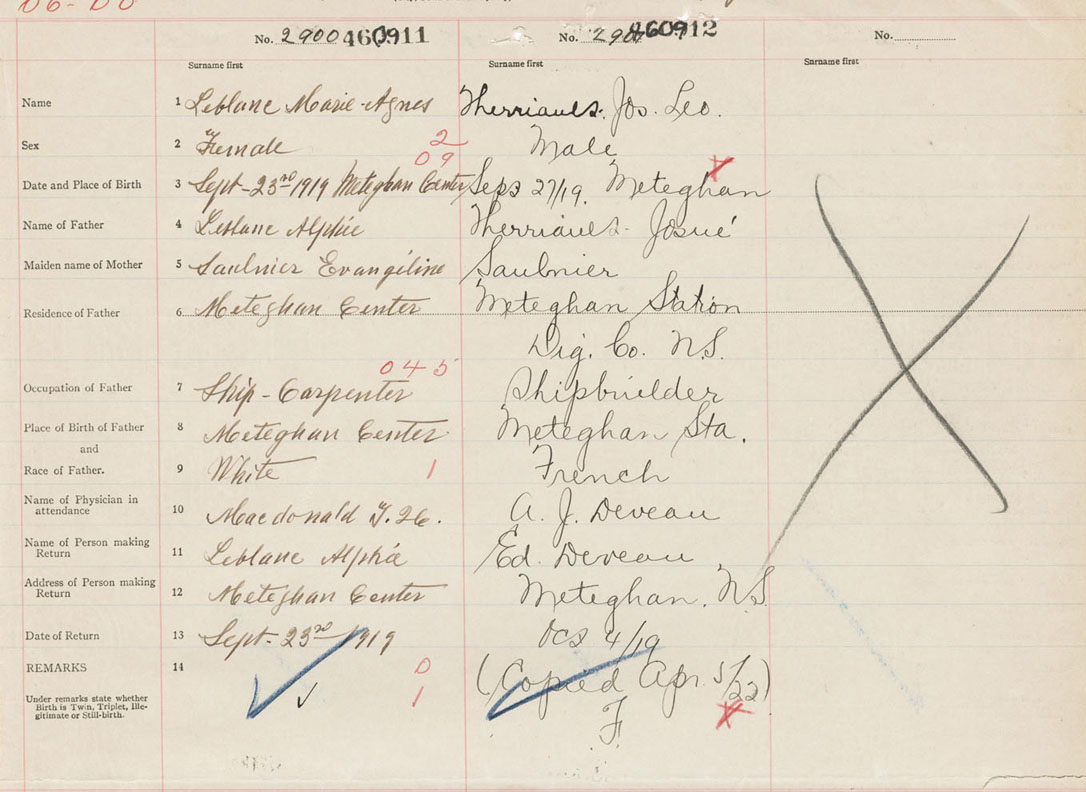 06-
No. 2900 460911 No. 290 460912 No.
Surname first Surname first Surname first
Name 1 Leblanc Marie-Agnes Therriault. Jos. Leo.
Sex 2 Female 2 Male
09
Date and Place of Birth 3 Sept-23rd 1919 Meteghan Center Sept 27/19. Meteghan
Name of Father 4 Leblanc Alphée Therriault Josué
Maiden name of Mother 5 Saulnier Evangéline Saulnier
Residence of Father 6 Meteghan Center Meteghan Station
Dig. Co. N.S.
045
Occupation of Father 7 Ship-Carpenter Shipbuilder
Place of Birth of Father 8 Meteghan Center Meteghan Sta.
and
Race of Father. 9 White 1 French
Name of Physician in
attendance 10 Macdonald A. J. Deveau
Name of Person making
Return 11 Leblanc Alphée Ed. Deveau
Address of Person making
Return 12 Meteghan Center Meteghan. N.S
Date of Return 13 Sept. 23rd 1919 Oct 4/19
REMARKS 14 0 (Copied Apr. 5/22)
Under remarks state whether
Birth is Twin, Triplet, Ille-
gitimate or Still-birth. 1 F